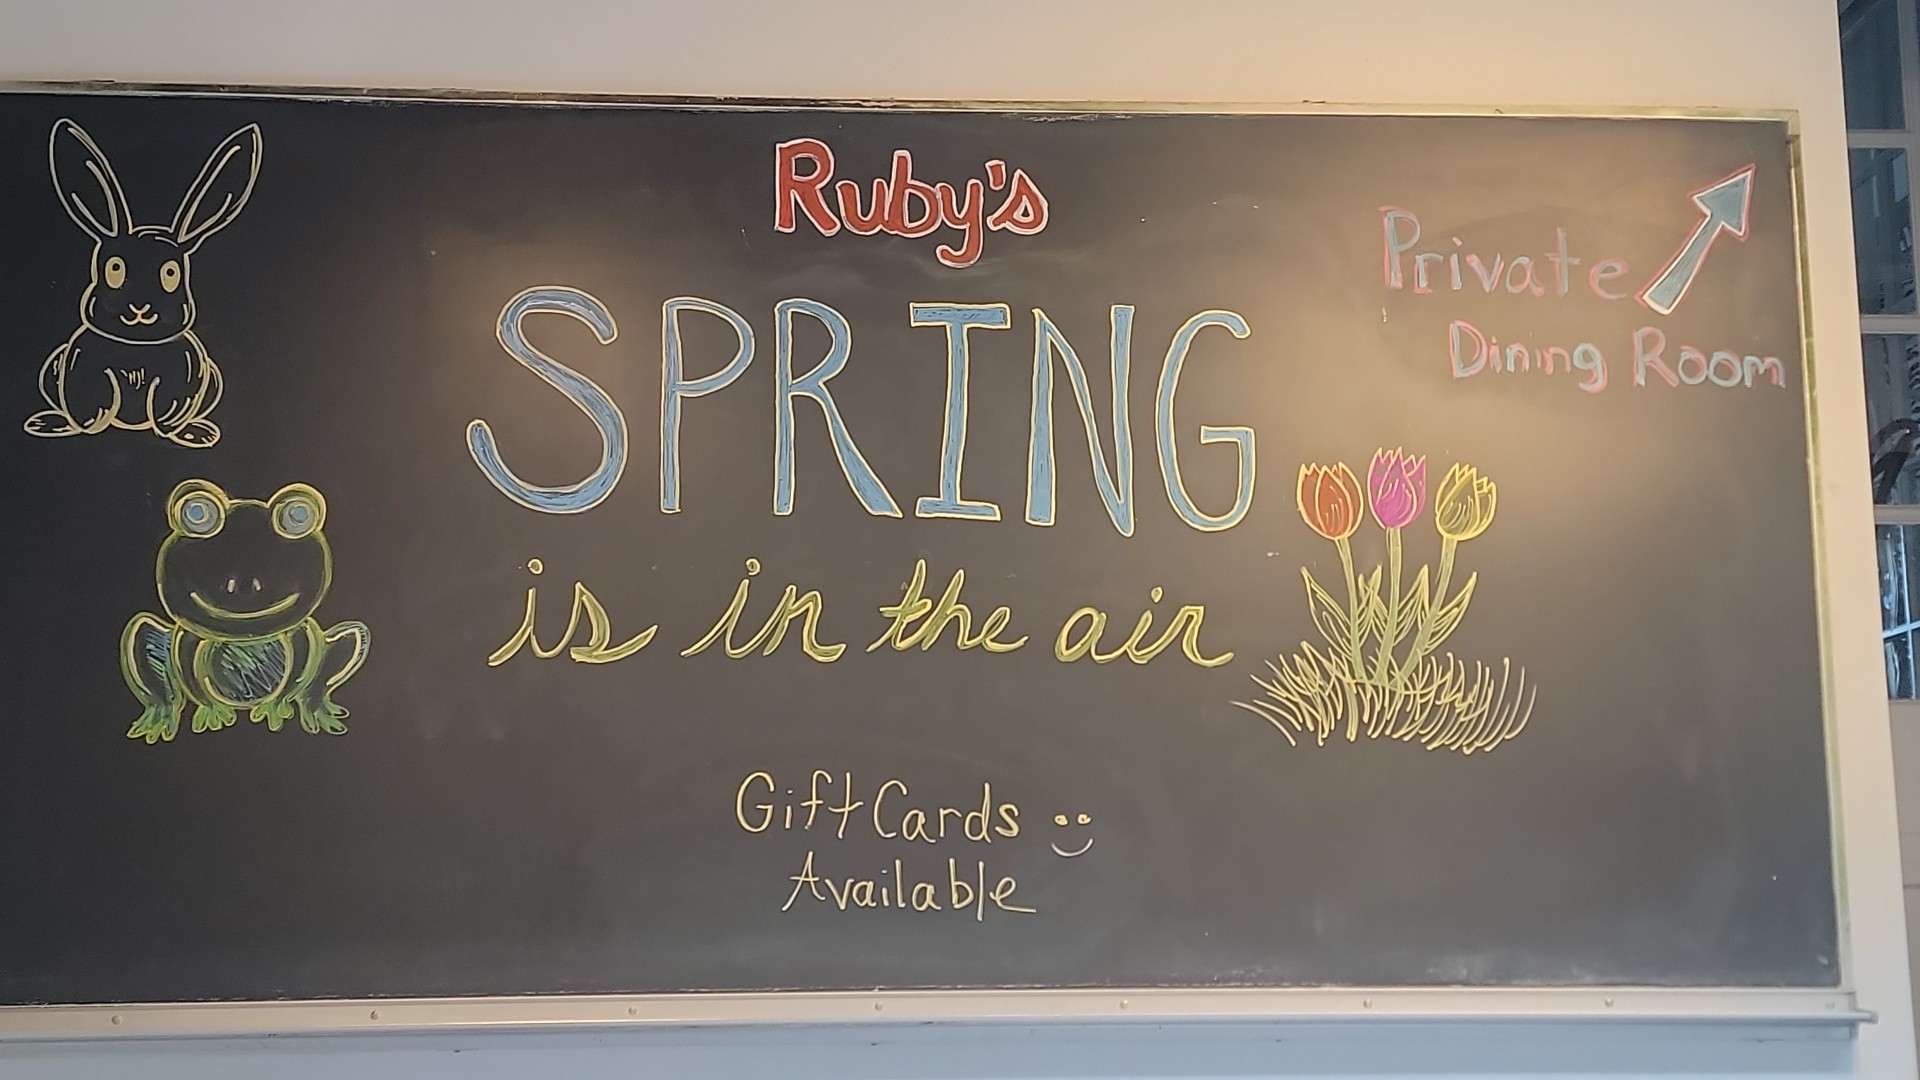 Ruby's
SPRING
is in the air
Private
Dining Room
Gift Cards
Available